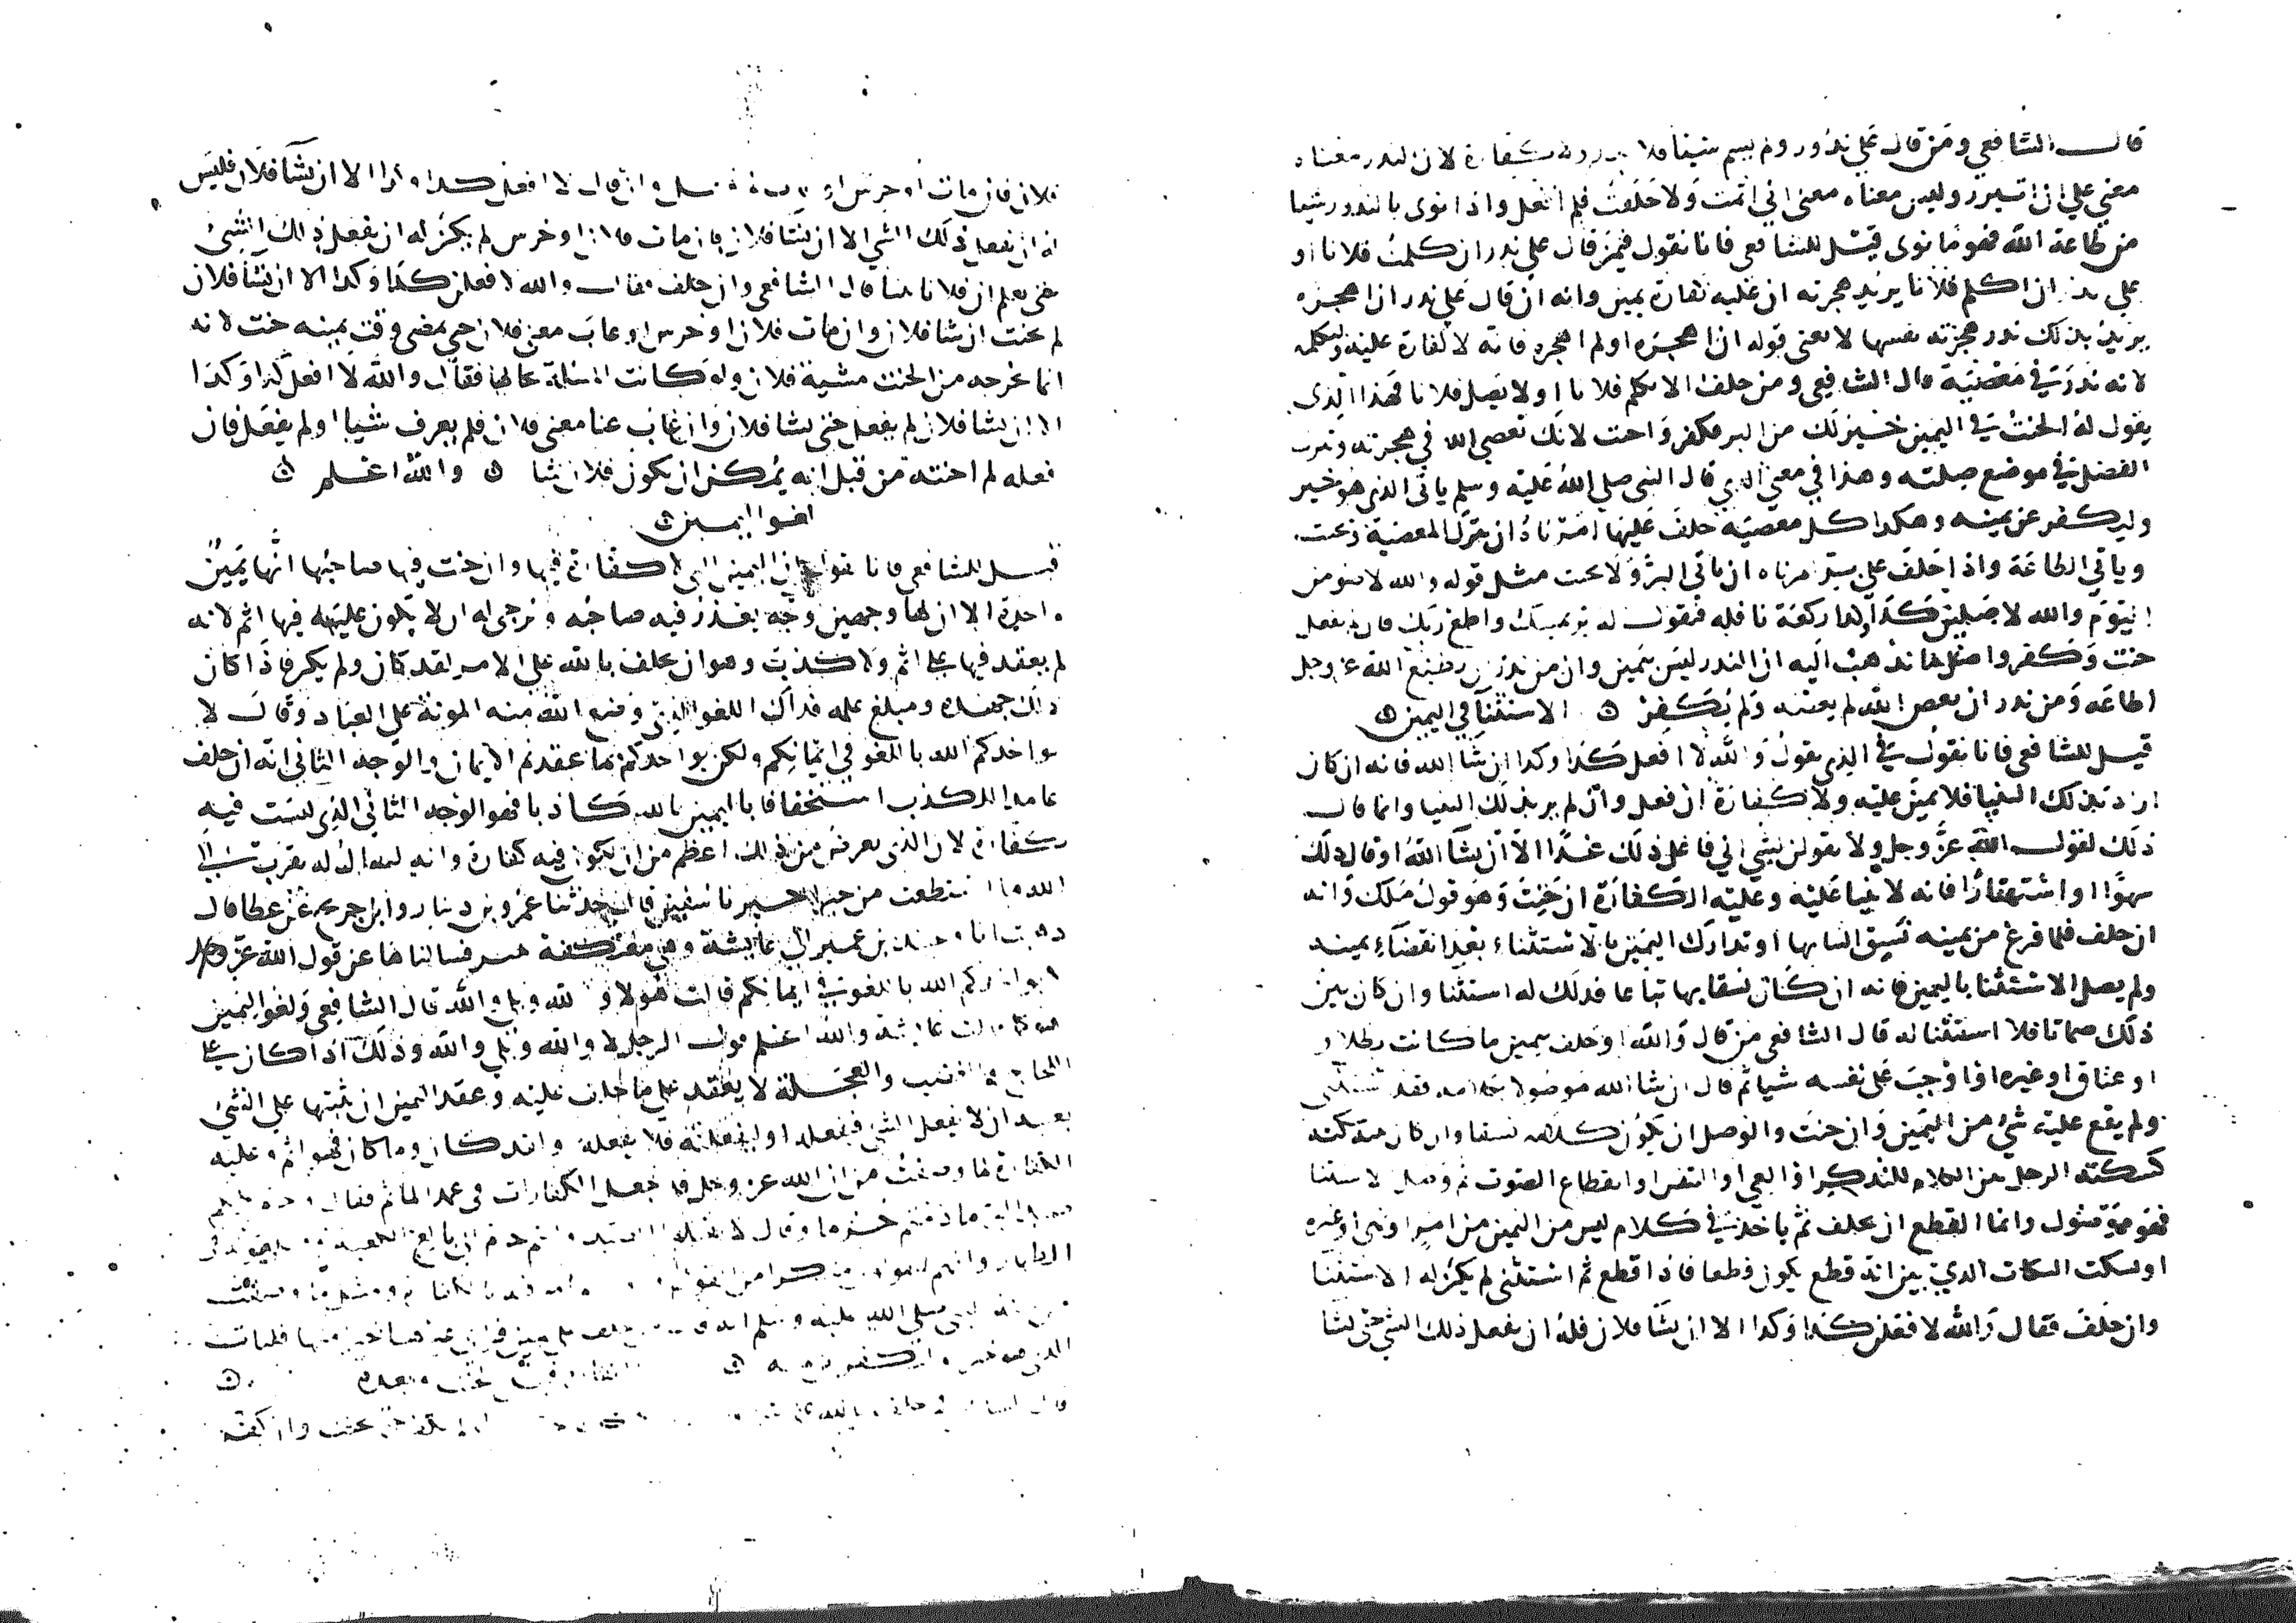 قال الشافعي ومن قال علي نذور ولم يسم شيئا فلا نذر ولا كفارة لان النذر معناه
معني علي ان ابر وليس معناه معنى اني اثمت ولا حلفت فلم افعل واذا نوى بالنذر شيا
من طاعة الله فهو ما نوى قيل للشافعي فانا نقول فيمن قال علي نذر ان كلمت فلانا او
علي نذر ان اكلم فلانا يريد هجرته ان عليه كفارة يمين وانه ان قال علي نذر ان اهجره
يريد بذلك نذر هجرته نفسها لا يعنى قوله ان اهجره او لم اهجره فانه لا كفارة عليه وليكلمه
لانه نذر في معصية قال الشافعي ومن حلف الا يكلم فلانا او لا يصل فلانا فهذا الذي
يقول له الحنث في اليمين خير لك من البر فكفر واحنث لانك تعصي الله في هجرته وتترك
الفضل في موضع صلته وهذا في معنى الذي قال النبي صلى الله عليه وسلم ياتي الذي هو خير
وليكفر عن يمينه وهكذا كل معصية حلف عليها امرناه ان يترك المعصية ويحنث
وياتي الطاعة واذا حلف على بر امرناه ان ياتي البر ولا يحنث مثل قوله والله لاصومن
اليوم والله لاصلين كذا وكذا ركعة نافلة فنقول له بر يمينك واطع ربك فان لم يفعل
حنث وكفر واصل ما نذهب اليه ان النذر ليس بيمين وان من نذر ان يطيع الله عز وجل
اطاعه ومن نذر ان يعصي الله لم يعصه ولم يكفر ن الاستثنا في اليمين ن
قيل للشافعي فانا نقول في الذي يقول والله لا افعل كذا وكذا ان شا الله فانه ان كان
اراد بذلك الثنيا فلا يمين عليه ولا كفارة ان فعل وان لم يرد بذلك الثنيا وانما قال
ذلك لقول الله عز وجل ولا تقولن لشي اني فاعل ذلك غدا الا ان يشآ الله او قال ذلك
سهوا او استهتارا فانه لا ثنيا عليه وعليه الكفارة ان حنث وهو قول ملك وانه
ان حلف فلما فرغ من يمينه نسق الثنيا بها او تدارك اليمين بالاستثناء بعد انقضاء يمينه
ولم يصل الاستثنا باليمين فانه ان كان نسقا بها تباعا فذلك له استثنا وان كان بين
ذلك صمات فلا استثنا له قال الشافعي من قال والله او حلف بيمين ما كانت بطلاق
او عتاق او غيره او اوجب على نفسه شيا ثم قال ان شا الله موصولا بكلامه فقد استثنى
ولم يقع عليه شئ من اليمين وان حنث والوصل ان يكون كلامه نسقا وان كان بينه سكتة
كسكتة الرجل من الكلام للتذكر او العي او النفس او انقطاع الصوت ثم وصل الاستثنا
فهو موصول وانما القطع ان يحلف ثم ياخذ في كلام ليس من اليمين من امر او نهي او غيره
او يسكت السكات الذي يبين انه قطع يكون قطعا فاذا قطع ثم استثنى لم يكن له الاستثنا
وان حلف فقال والله لافعلن كذا وكذا الا ان يشا فلان فله ان يفعل ذلك الشي حتى يشا
فلان فان مات او خرس او وان قال لا افعل كذا وكذا الا ان يشآ فلان فليس
له ان يفعل ذلك الشي الا ان يشا فلان فان مات فلان او خرس لم يكن له ان يفعل ذلك الشئ
حتى يعلم ان فلانا شا قال الشافعي وان حلف فقال والله لافعلن كذا وكذا الا ان يشا فلان
لم يحنث ان شا فلان وان مات فلان او خرس او غاب معنى فلان حتى يمضي وقت يمينه حنث لانه
انما يخرجه من الحنث مشية فلان ولو كانت المسلة بحالها فقال والله لا افعل كذا وكذا
الا ان يشا فلان لم يفعل حتى يشا فلان وان غاب عنا معنى فلان فلم يعرف شيا او لم يفعل فان
فعله لم احنثه من قبل انه يمكن ان يكون فلان شا ن والله اعلم ن
لغو اليمين ن
قيل للشافعي فانا نقول ان اليمين التي لا كفارة فيها وان حنث فيها صاحبها انها يمين
واحدة الا ان لها وجهين وجه يعذر فيه صاحبه ونرجى له ان لا يكون عليه فيها اثم لانه
لم يعقد فيها على اثم ولا كذب وهو ان يحلف بالله على الامر لقد كان ولم يكن فاذا كان
ذلك جهده ومبلغ علمه فذلك اللغو الذي وضع الله منه المونة على العباد وقال لا
يواخذكم الله باللغو في ايمانكم ولكن يواخذكم بما عقدتم الايمان والوجه الثاني انه ان حلف
عامدا للكذب استخفافا باليمين بالله كاذبا فهو الوجه الثاني الذي ليست فيه
كفارة لان الذي يعرض من ذلك اعظم من ان يكون فيه كفارة وانه ليقال له تقرب الى
الله بما استطعت من خير اخبرنا سفين قال حدثنا عمرو بن دينار وابن جريج عن عطا قال
ذهبت انا وعبيد بن عمير الى عايشة وهي معتكفة في فسالناها عن قول الله عز وجل
لا يواخذكم الله باللغو في ايمانكم قالت هو لا والله وبلى والله قال الشافعي ولغو اليمين
كما قالت عايشة والله اعلم قول الرجل لا والله وبلى والله وذلك اذا كان على
اللجاج والغضب والعجلة لا يعقد على ما حلف عليه وعقد اليمين ان يثبتها على الشئ
بعينه ان لا يفعل الشي فيفعله او ليفعلنه فلا يفعله او لقد كان وما كان فهو اثم وعليه
الكفارة لما وصفت من ان الله عز وجل قد جعل الكفارات في عمد الماثم فقال وحرم عليكم
صيد البر ما دمتم حرما وقال لا تقتلوا الصيد وانتم حرم الى بالغ الكعبة ومثل قوله في
الظهار وانهم ليقولون منكرا من القول ثم امر فيه بالكفارة ومثل ما وصفت
من سنة النبي صلى الله عليه وسلم انه من حلف على يمين فراى غيرها خيرا منها فليات
الذي هو خير وليكفر عن يمينه ن الكفارة قبل الحنث وبعده ن
قال الشافعي فمن حلف بالله يحنث وان كفر